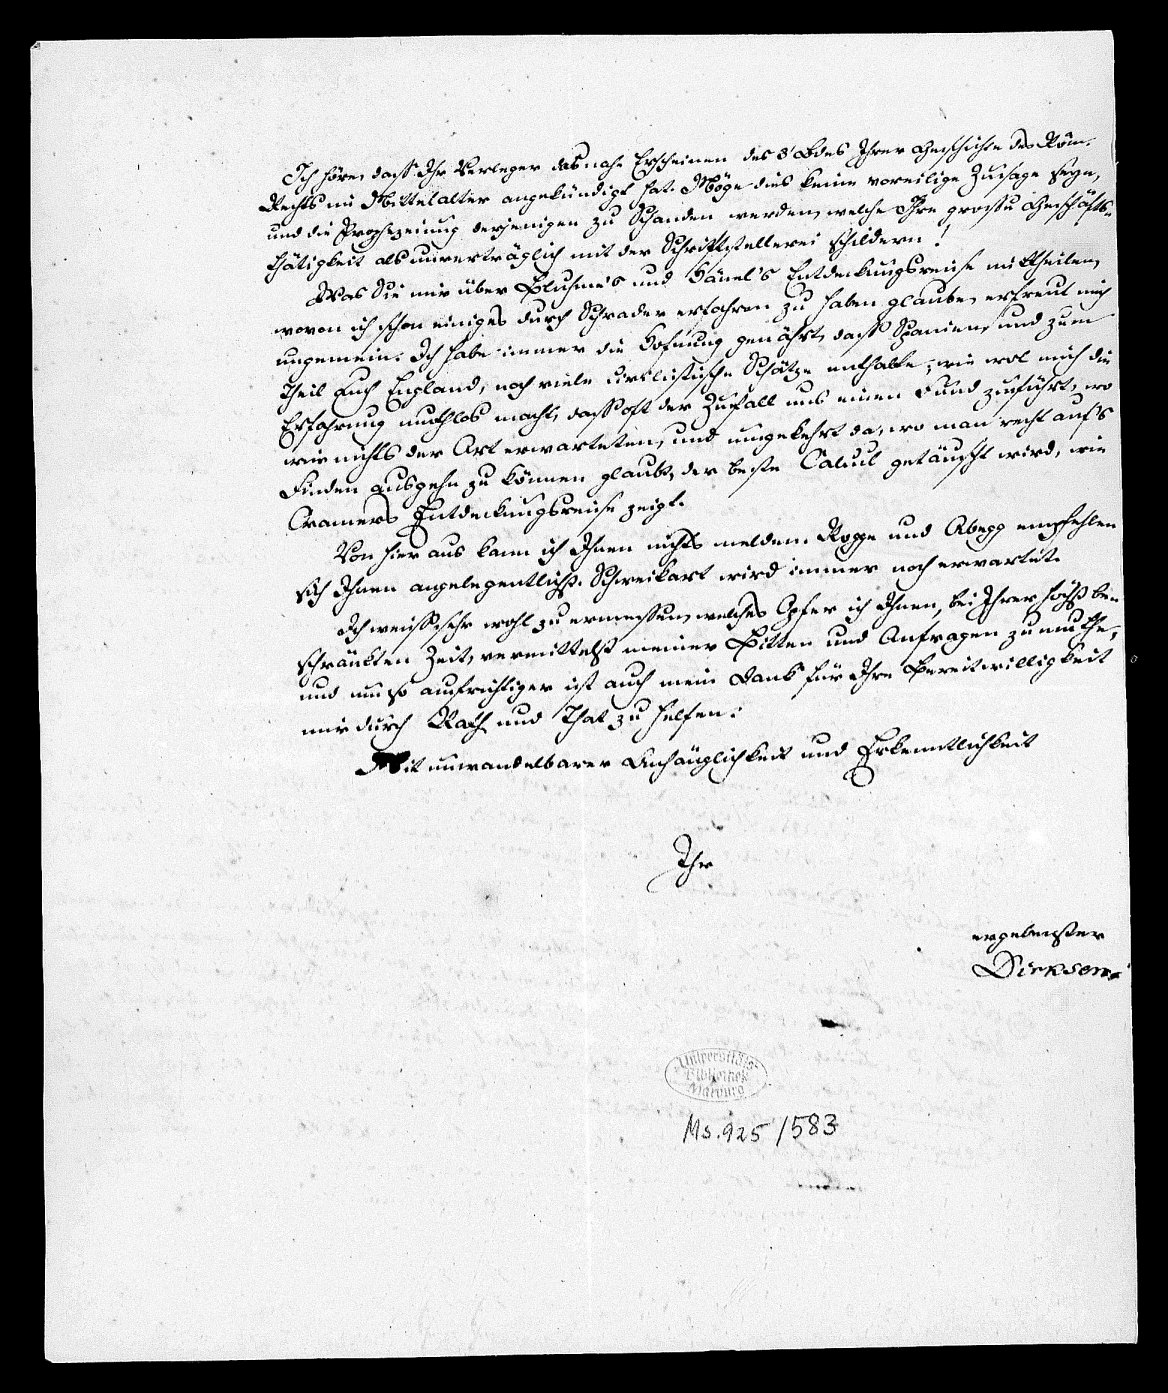 Ich höre, dass Ihr Verleger das nahe Erscheinen des 3' Bdes Ihrer Geschichte des Röm.
Rechts im Mittelalter angekündigt hat. Möge dies keine voreilige Zusage seyn,
und die Prophezeiung derjenigen zu Schanden werden, welche Ihre grosse Geschäfts-
thätigkeit als unverträglich mit der Schriftstellerei schildern!
Was Sie mir über Bluhme's und Hänel's Entdeckungsreise mittheilen,
wovon ich schon einiges durch Schrader erfahren zu haben glaube, erfreut mich
ungemein. Ich habe immer die Hofnung genährt, dass Spanien, und zum
Theil auch England, noch viele civilistische Schätze enthalte; wie wol mich die
Erfahrung muthlos macht, dass oft der Zufall uns einen Fund zuführt, wo
wir nichts der Art erwarteten, und umgekehrt da, wo man recht auf's
Finden ausgehn zu können glaubt, der beste Calcul getäuscht wird, wie
Cramers Entdeckungsreise zeigt.
Von hier aus kann ich Ihnen nichts melden. Rogge und Abegg empfehlen
sich Ihnen angelegentlichst. Schweikart wird immer noch erwartet.
Ich weiss sehr wohl zu ermessen, welches Opfer ich Ihnen, bei Ihrer höchst be-
schränkten Zeit, vermittelst meiner Bitten und Anfragen zumuthe,
und um so aufrichtiger ist auch mein Dank für Ihre Bereitwilligkeit
mir durch Rath und That zu helfen.
Mit unwandelbarer Anhänglichkeit und Erkenntlichkeit
Ihr
ergebenster
Dirksen
Universitäts-
Bibliothek
Marburg
Ms. 925/583